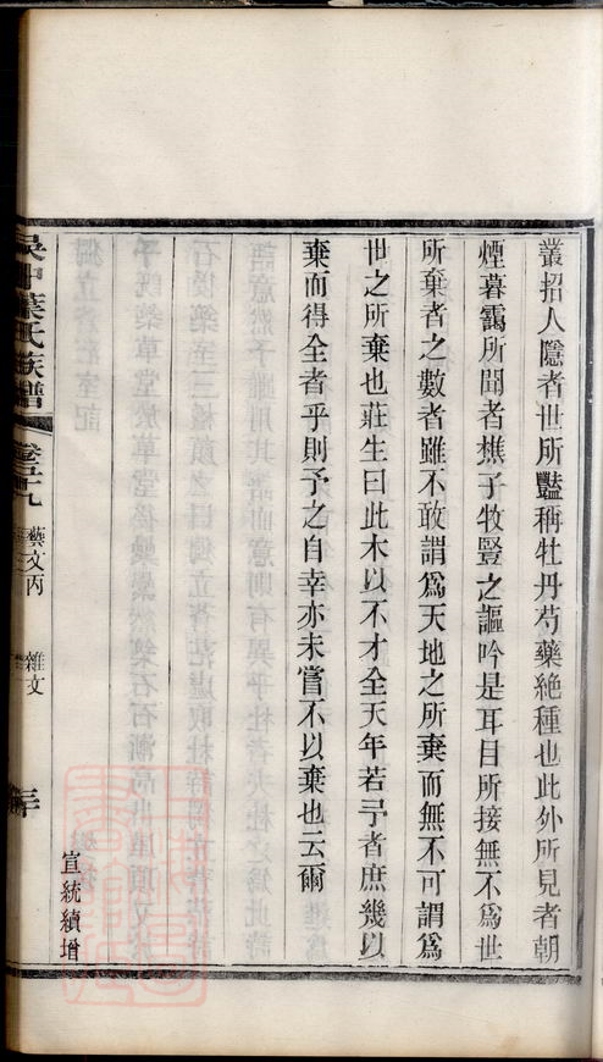 叢招人隱者世所豔稱牡丹芍藥絶種也此外所見者朝
煙暮靄所聞者樵子牧豎之謳吟是耳目所接無不爲世
所棄者之數者雖不敢謂爲天地之所棄而無不可謂爲
世之所棄也莊生曰此木以不才全天年若予者庶幾以
棄而得全者乎則予之自幸亦未嘗不以棄也云爾
宣統續增
吳中葉氏族譜 卷五十九 藝文丙 雜文